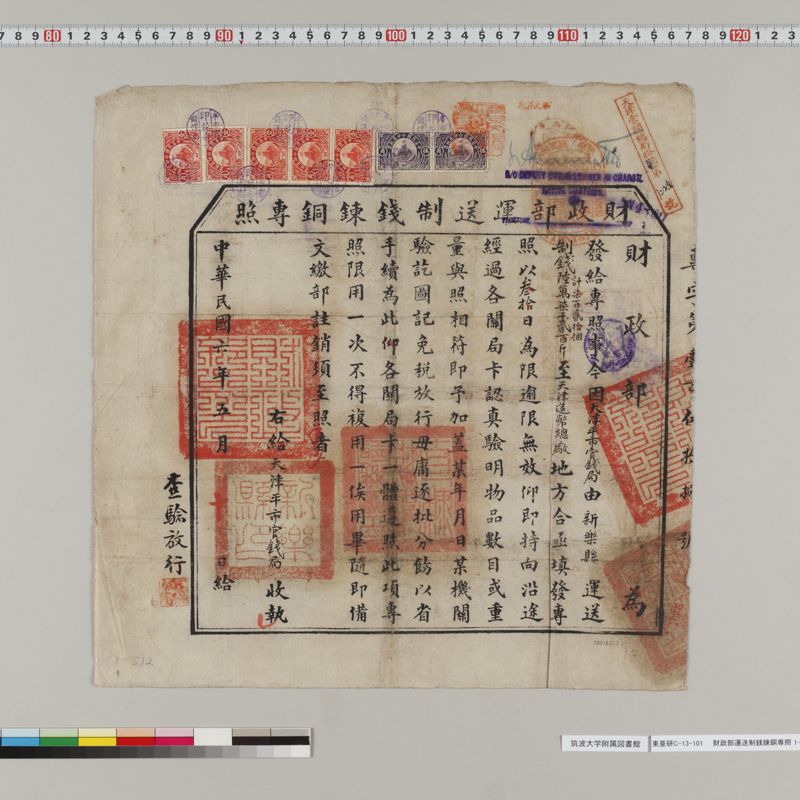 財政部運送制錢鍊銅專照
財政部 為
發給專照事今因天津平市官錢局由新樂縣運送
制錢陸萬柒千貳百斤計柒百貳拾個至天津造幣總廠地方合亟填發專
照以叁拾日為限逾限無效仰即持向沿途
經過各關局卡認真驗明物品數目或重
量與照相符即予加蓋某年月日某機關
驗訖圖記免稅放行毋庸逐批分飭以省
手續為此仰各關局卡一體遵照此項專
照限用一次不得複用一俟用畢隨即備
文繳部註銷須至照者
右給天津平市官錢局收執
中華民國六年五月 日給
查驗放行
D/O DEPUTY COMMISSIONER IN CHARGE,
NATIVE CUSTOMS.
新樂縣印
1-512
筑波大学附属図書館
東亜研C-13-101 財政部運送制銭錬銅専照 1-
7 8 9 80 1 2 3 4 5 6 7 8 9 90 1 2 3 4 5 6 7 8 9 100 1 2 3 4 5 6 7 8 9 110 1 2 3 4 5 6 7 8 9 120 1 2 3